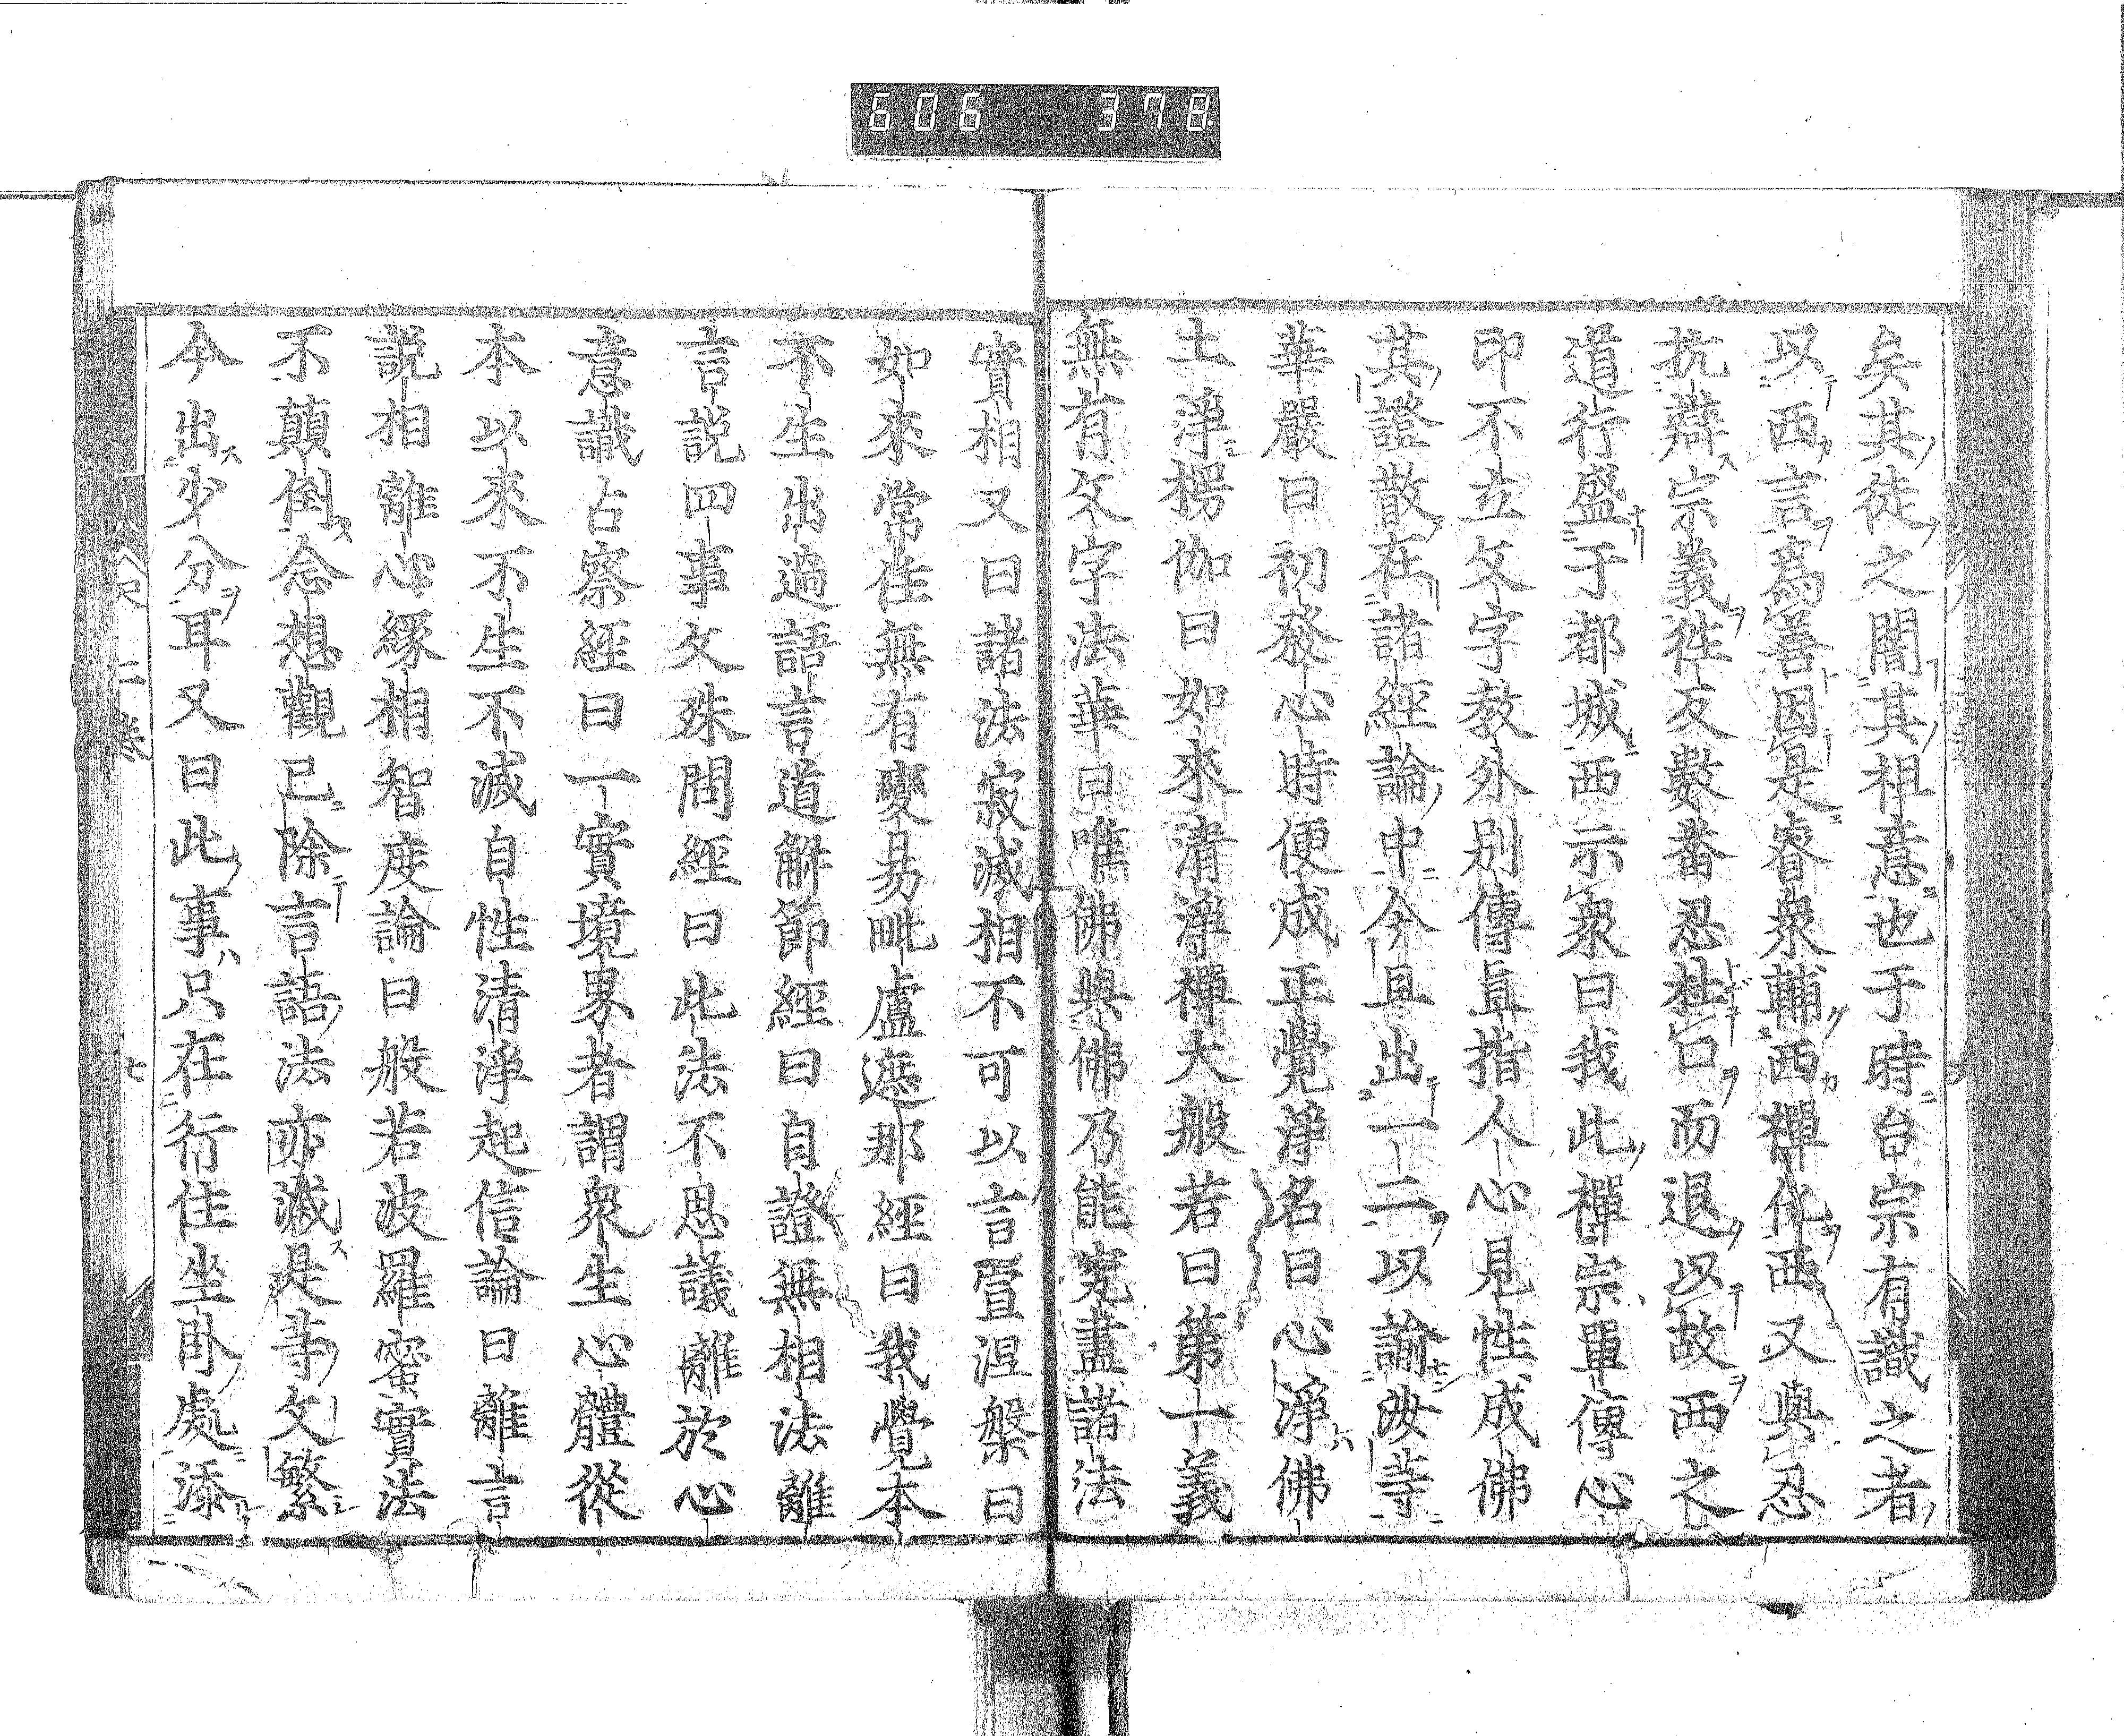 606 378.
矣其徒之闇其祖意也于時台宗有識之者
以西言爲善因是睿衆輔西禪化西又與忍
抗辯宗義往反數番忍杜口而退以故西之
道行盛于都城西示衆曰我此禪宗單傳心
印不立文字教外別傳直指人心見性成佛
其證散在諸經論中今且出一二以諭汝等
華嚴曰初發心時便成正覺淨名曰心淨佛
土淨楞伽曰如來清淨禪大般若曰第一義
無有文字法華曰唯佛與佛乃能究盡諸法
實相又曰諸法寂滅相不可以言宣涅槃曰
如來常住無有變易毗盧遮那經曰我覺本
不生出過語言道解節經曰自證無相法離
言説四事文殊問經曰此法不思議離於心
意識占察經曰一實境界者謂衆生心體從
本以來不生不滅自性清淨起信論曰離言
説相離心緣相智度論曰般若波羅蜜實法
不顛倒念想觀已除言語法亦滅是等文繁
今出少分耳又曰此事只在行住坐臥處添
二卷 七